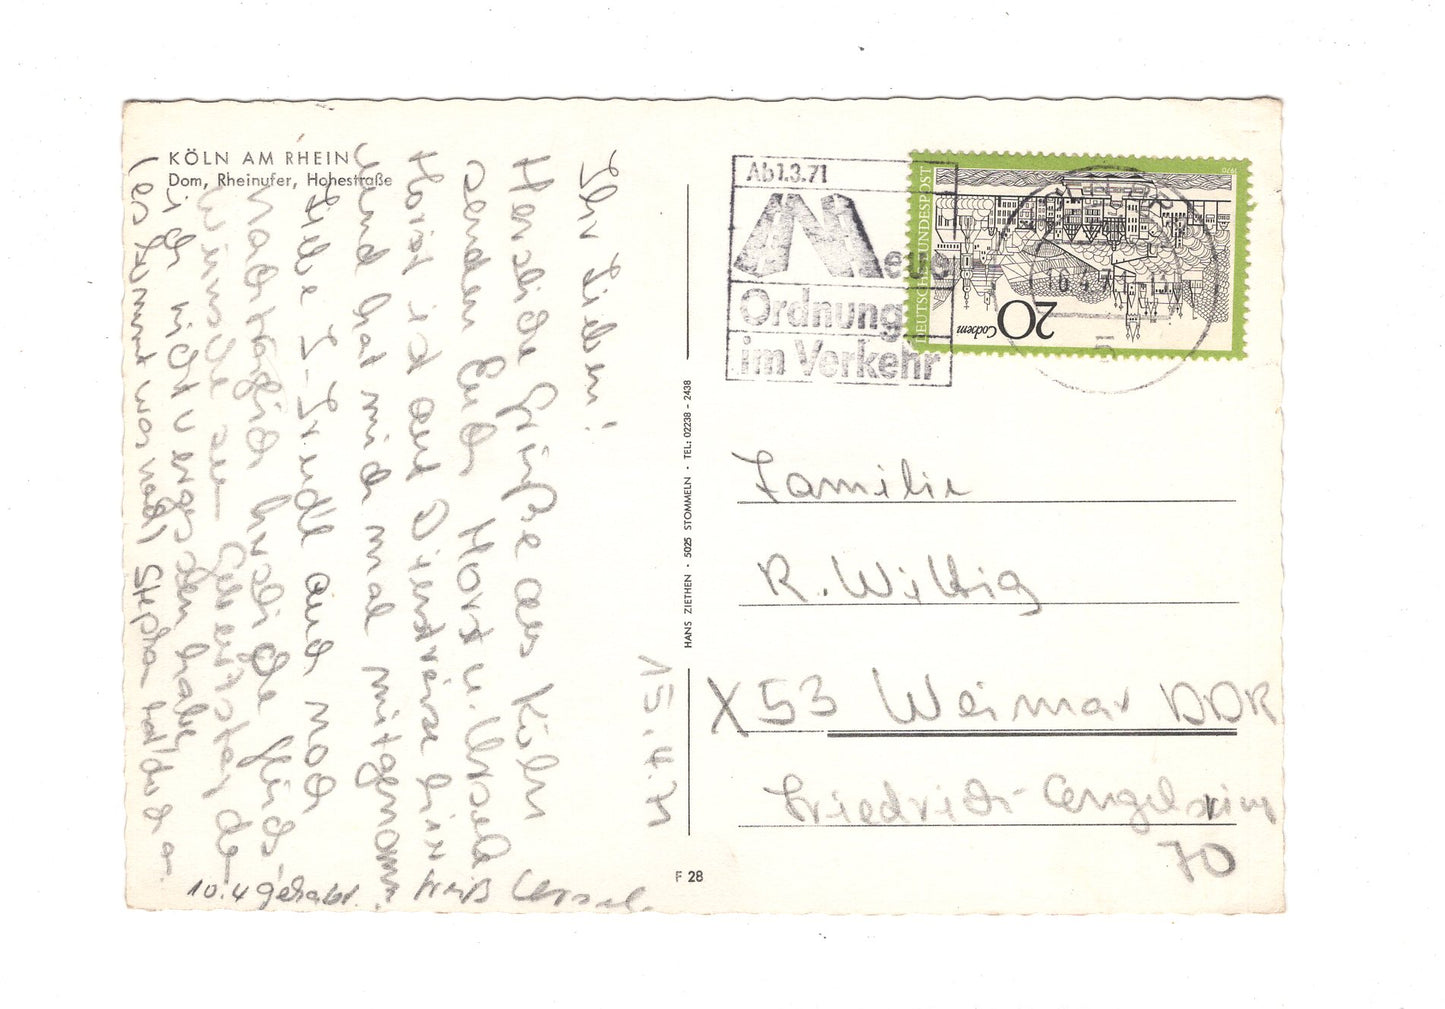 KÖLN AM RHEIN
Dom, Rheinufer, Hohestraße
15.4.71
Ihr Lieben!
Herzliche Grüße aus Köln
senden Euch Horst u. Ursula
Horst ist auf Dienstreise hier
und hat mich mal mitgenomm
Lilli und noch
nachträglich herzliche Glück
wünsche zu
ich nicht vergessen habe,
(es kommt was nach) Stephan hat doch a
10.4 gehabt.
HANS ZIETHEN · 5025 STOMMELN · TEL.: 02238 - 2438
F 28
Ab 1.3.71
Neue
Ordnung
im Verkehr
DEUTSCHE BUNDESPOST
1970
20
Cochem
16.4.71
Familie
R. Wittig
X 53 Weimar DDR
Friedrich-Engelsring
70